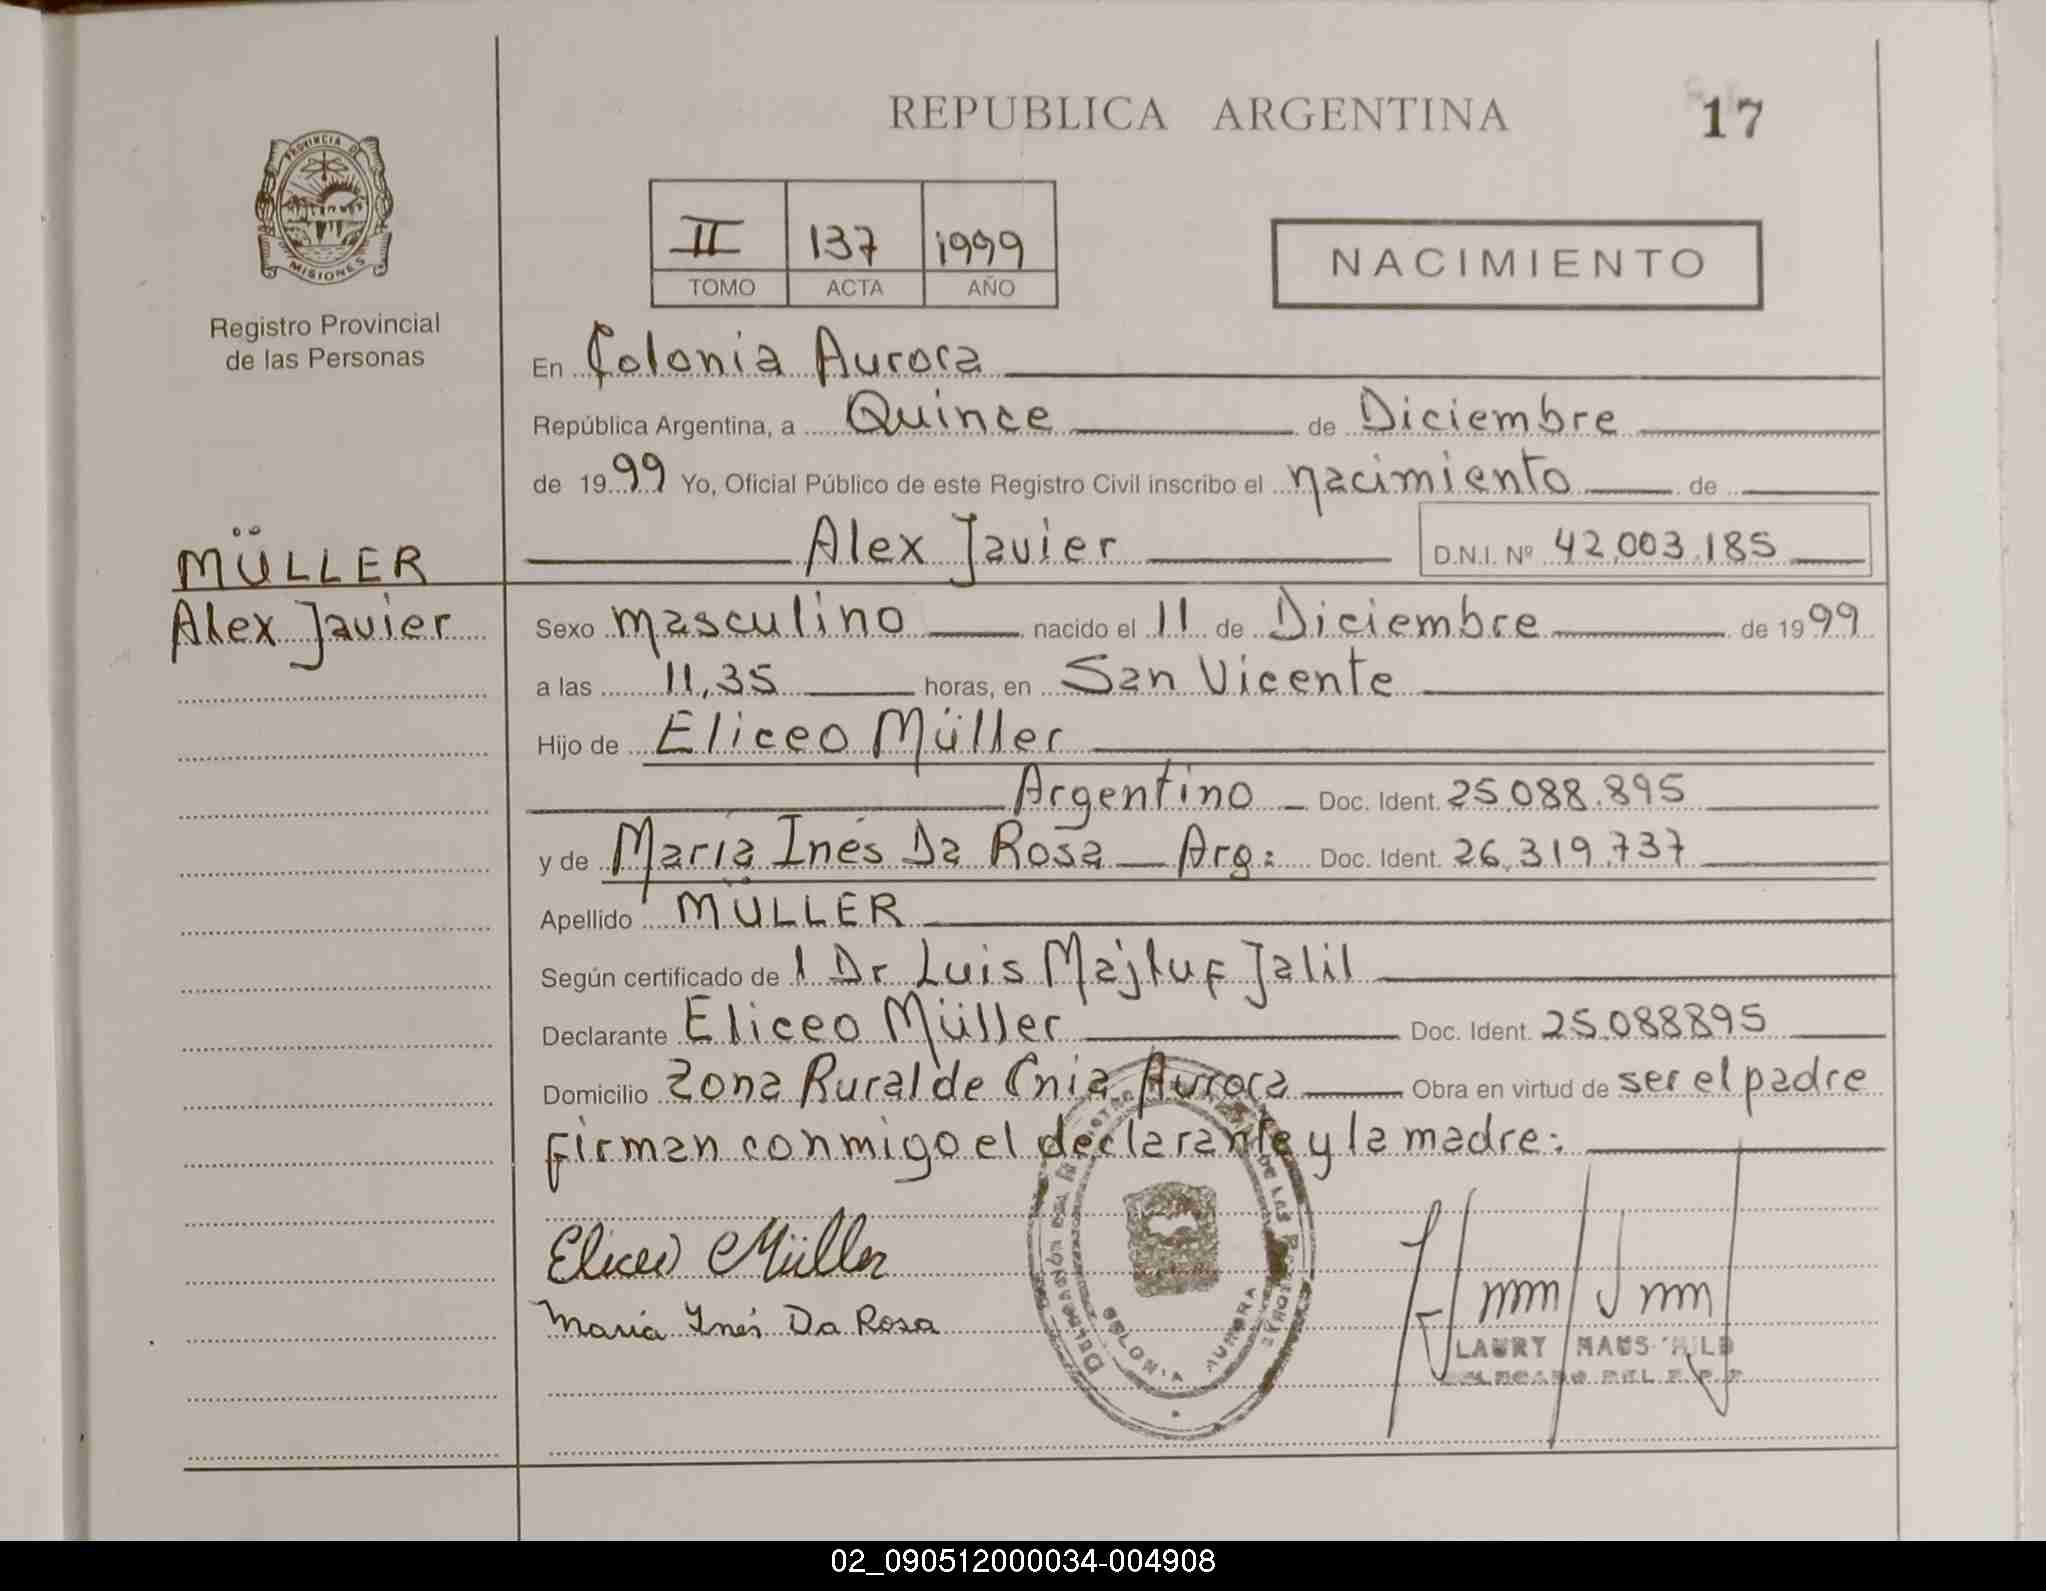 REPUBLICA ARGENTINA
17
PROVINCIA DE
MISIONES
Registro Provincial
de las Personas
II 137 1999
TOMO ACTA AÑO
NACIMIENTO
En Colonia Aurora
República Argentina, a Quince de Diciembre
de 1999 Yo, Oficial Público de este Registro Civil inscribo el nacimiento de
Alex Javier D.N.I. Nº 42.003.185
MÜLLER
Alex Javier
Sexo masculino nacido el 11 de Diciembre de 1999
a las 11,35 horas, en San Vicente
Hijo de Eliceo Müller
Argentino Doc. Ident. 25.088.895
y de María Inés Da Rosa Arg: Doc. Ident. 26.319.737
Apellido MÜLLER
Según certificado de l Dr Luis Majluf Jalil
Declarante Eliceo Müller Doc. Ident. 25.088895
Domicilio Zona Rural de Cnia Aurora Obra en virtud de ser el padre
Firman conmigo el declarante y la madre:
Eliceo Müller
María Inés Da Rosa
COLONIA AURORA
LAURY
02_090512000034-004908